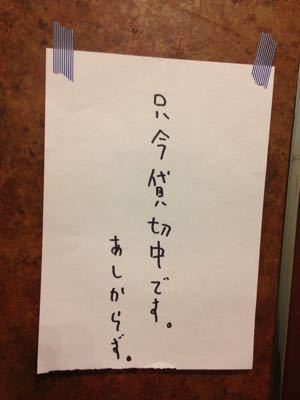 只今貸切中です。
あしからず。